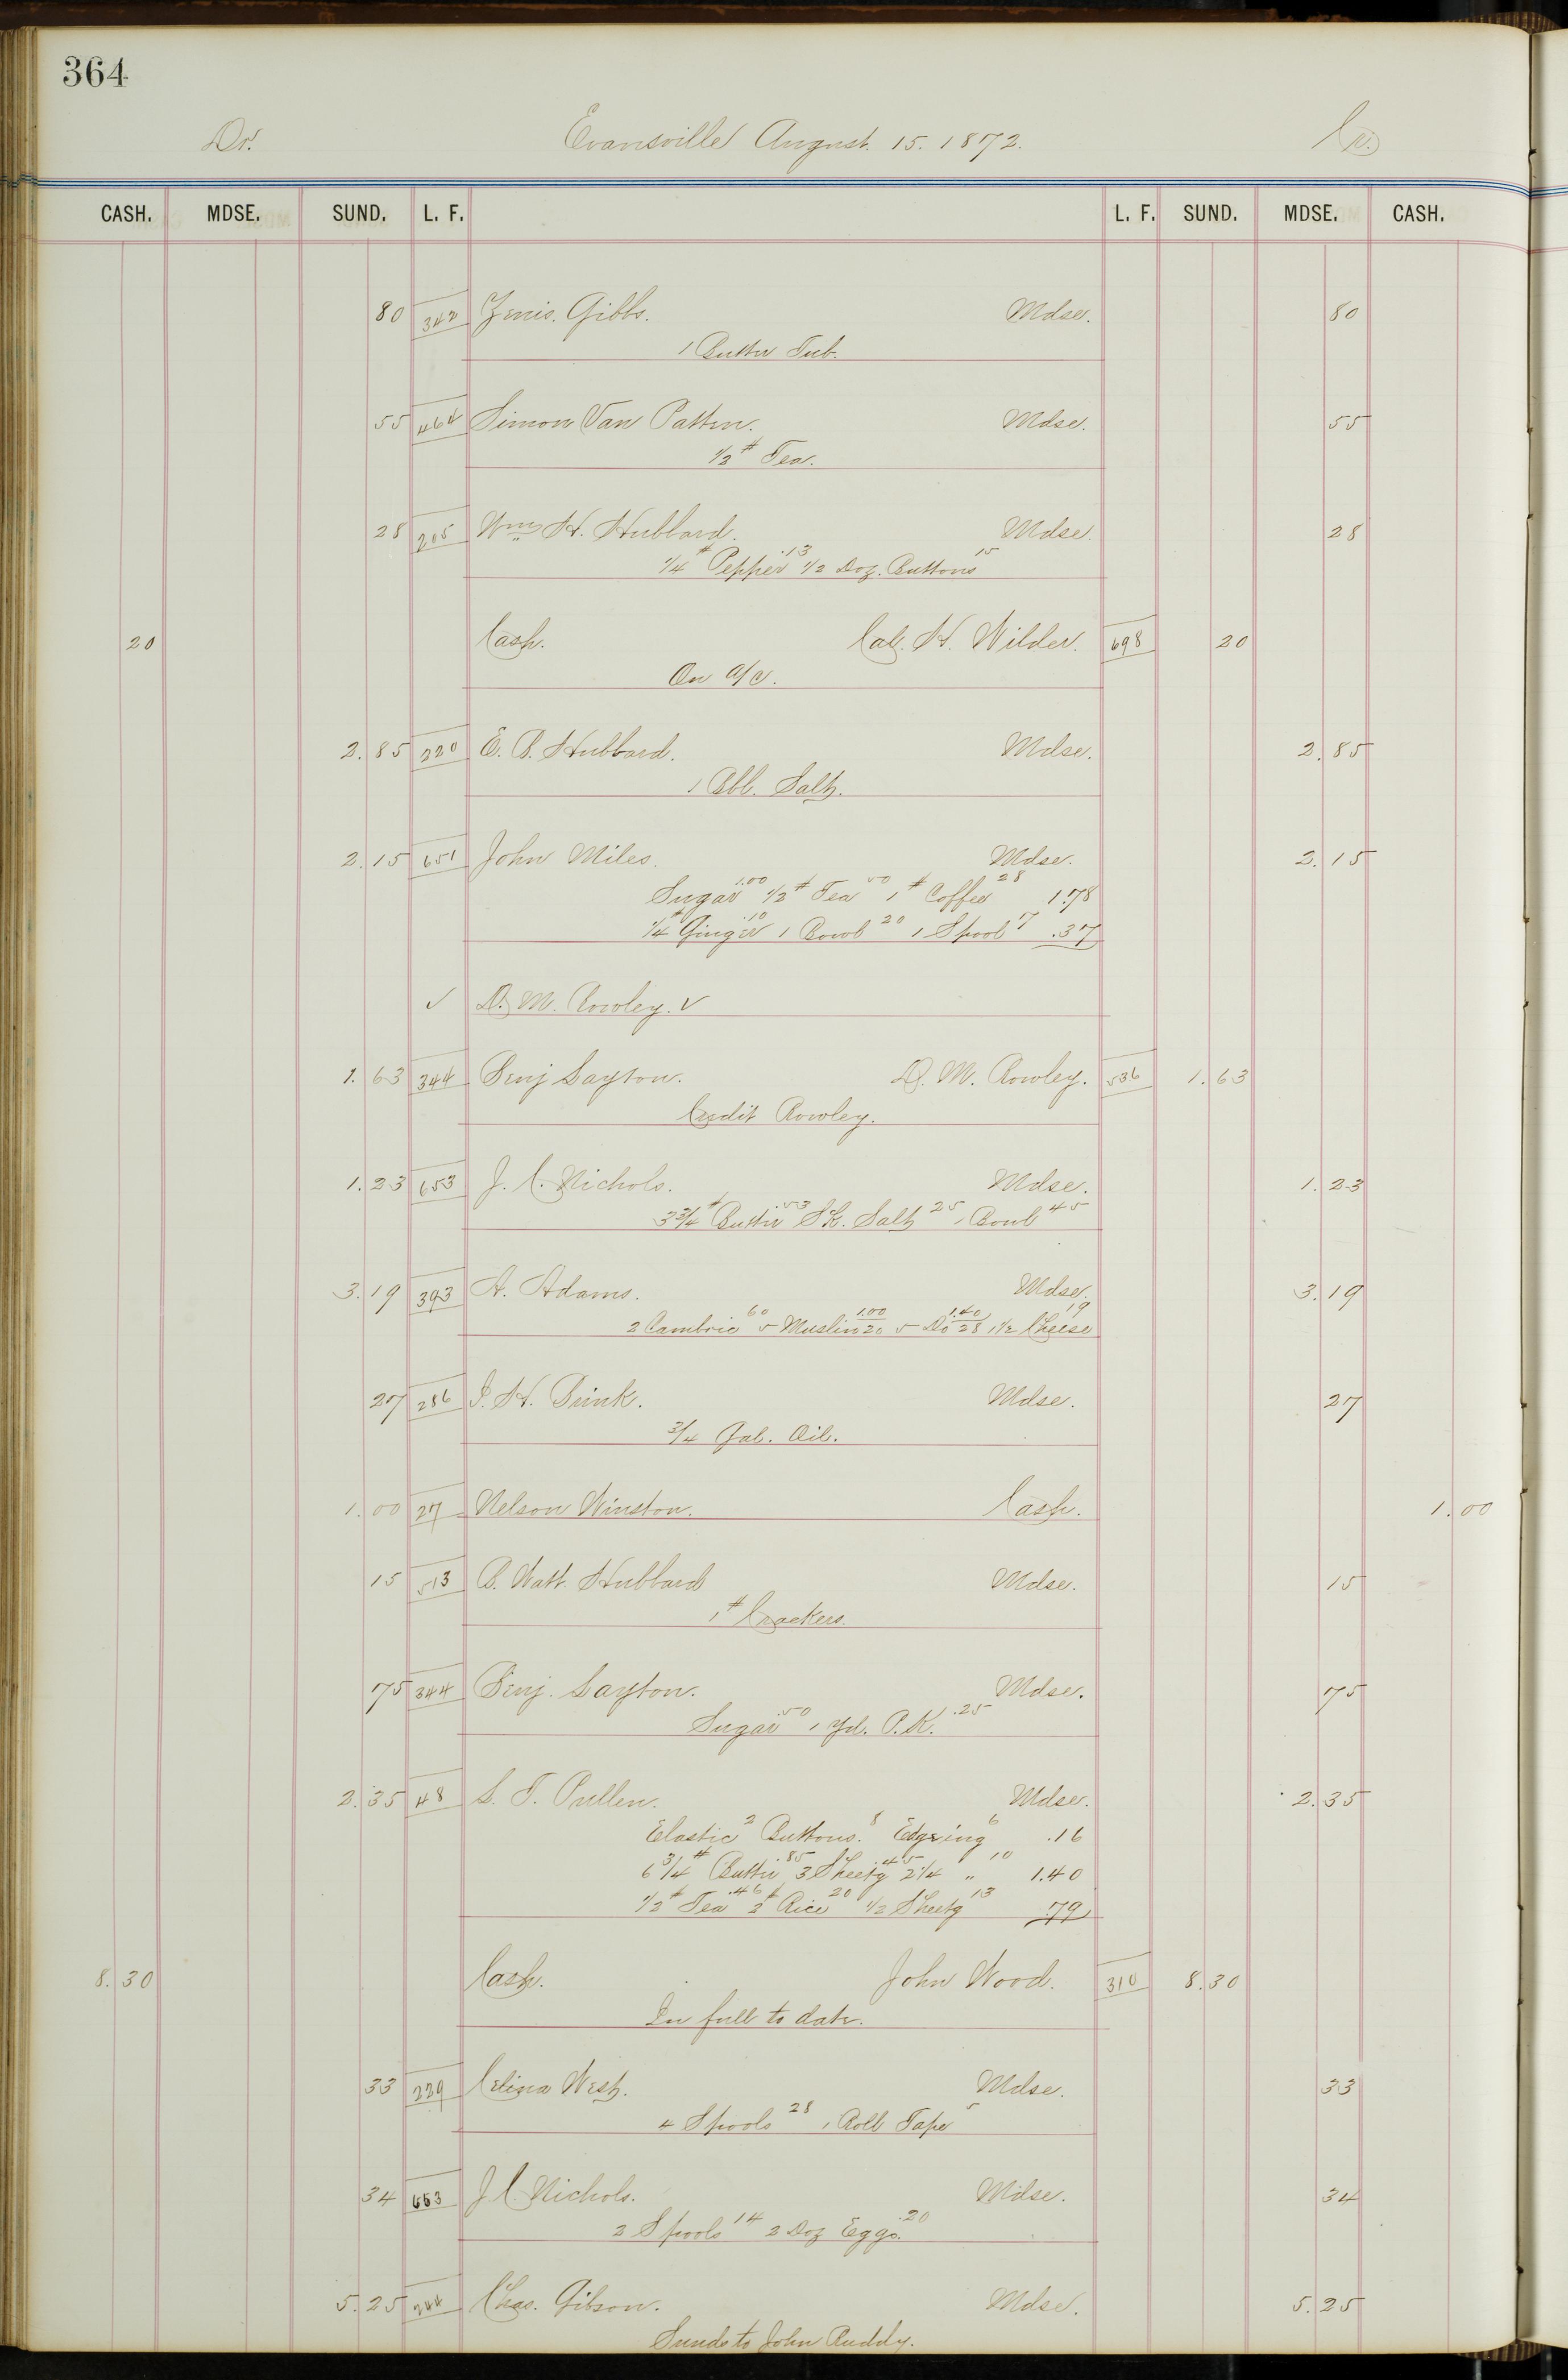 364
Dr. Evansville August. 15. 1872. Cr.
CASH. MDSE. SUND. L. F. L. F. SUND. MDSE. CASH.
80 342 Zenis. Gibbs. Mdse. 80
1 Butter Tub.
55 464 Simon Van Patten. Mdse. 55
1/2 # Tea.
28 205 Wm H. Hubbard. Mdse. 28
1/4 # Pepper .13 1/2 Doz. Buttons 15
20 Cash. Cal. H. Wilder. 698 20
On a/c.
2.85 220 E. B. Hubbard. Mdse. 2.85
1 Bbl. Salt.
2.15 651 John Miles. Mdse. 2.15
Sugar 1.00 1/2 # Tea 50 1 # Coffee 28 1.78
1/4 # Ginger .10 1 Bowl 20 1 Spool 7 .37
✓ D. M. Rowley. ✓
1.63 344 Benj Layton. D. M. Rowley. 536 1.63
Credit Rowley.
1.23 653 J. C. Nichols. Mdse. 1.23
3 3/4 # Butter .53 Sk. Salt 25 1 Bowl 45
3.19 393 A. Adams. Mdse. 3.19
2 Cambric 60 5 Muslin 1.00 20 5 Do 1.40 28 1 1/2 Cheese 19
27 286 I. H. Brink. Mdse. 27
3/4 Gal. Oil.
1.00 27 Nelson Winston. Cash. 1.00
15 513 B. Watt. Hubbard Mdse. 15
1 # Crackers.
75 344 Benj. Layton. Mdse. 75
Sugar .50 1 Yd. P.K. .25
2.35 48 L. T. Pullen. Mdse. 2.35
Elastic 2 Buttons. 8 Edgeing 6 .16
6 3/4 # Butter .85 3 Sheetg .45 2 1/4 " 10 1.40
1/2 # Tea .46 2 # Rice 20 1/2 Sheetg 13 .79
8.30 Cash. John Wood. 310 8.30
In full to date.
33 229 Celina West. Mdse. 33
4 Spools 28 1 Roll Tape 5
34 653 J. C. Nichols. Mdse. 34
2 Spools 14 2 Doz Eggs. .20
5.25 244 Chas. Gibson. Mdse. 5.25
Sunds to John Ruddy.